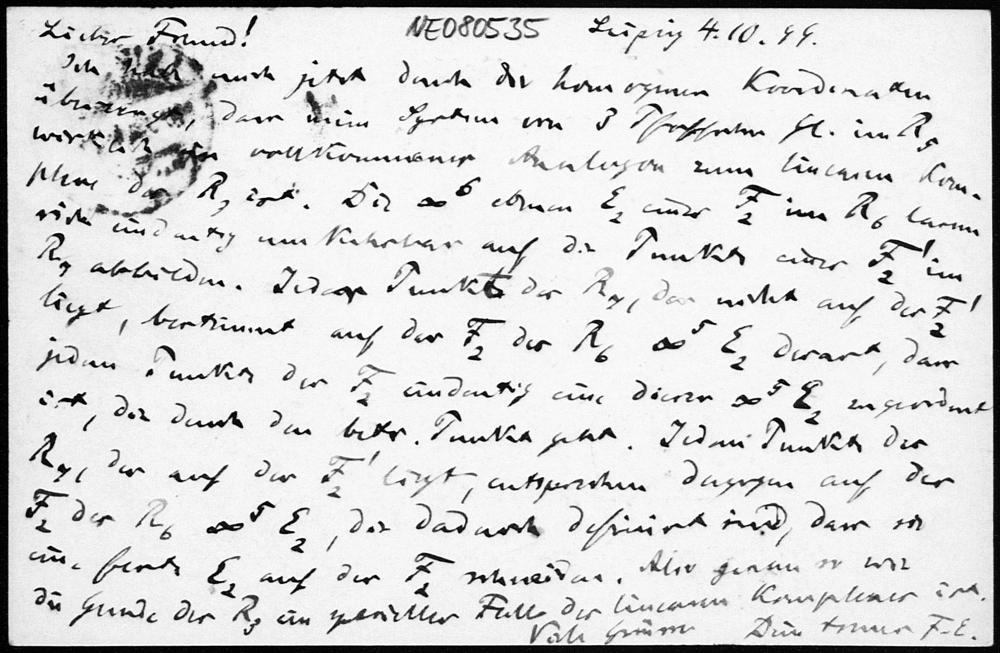 Lieber Freund! NEO80535 Leipzig 4.10.99.
Ich habe mich jetzt durch die homogenen Koordinaten
überzeugt, dass mein System von 3 Pfaffschen Gl. im R5
wirklich ein vollkommenes Analogon zum linearen Kom-
plexe des R3 ist. Die ∞6 ebenen E2 einer F2 im R6 lassen
sich eindeutig umkehrbar auf die Punkte einer F2' im
R7 abbilden. Jeder Punkt des R7, der nicht auf der F2'
liegt, bestimmt auf der F2 des R6 ∞5 E2 derart, dass
jedem Punkte der F2 eindeutig eine dieser ∞5 E2 zugeordnet
ist, die durch den betr. Punkt geht. Jedem Punkte des
R7, der auf der F2' liegt, entsprechen dagegen auf der
F2 des R6 ∞5 E2, die dadurch definirt sind, dass sie
eine feste E2 auf der F2 schneiden. Also genau so wie
die Gerade des R3 ein specieller Fall des linearen Komplexes ist.
Viele Grüsse Dein treuer F.E.